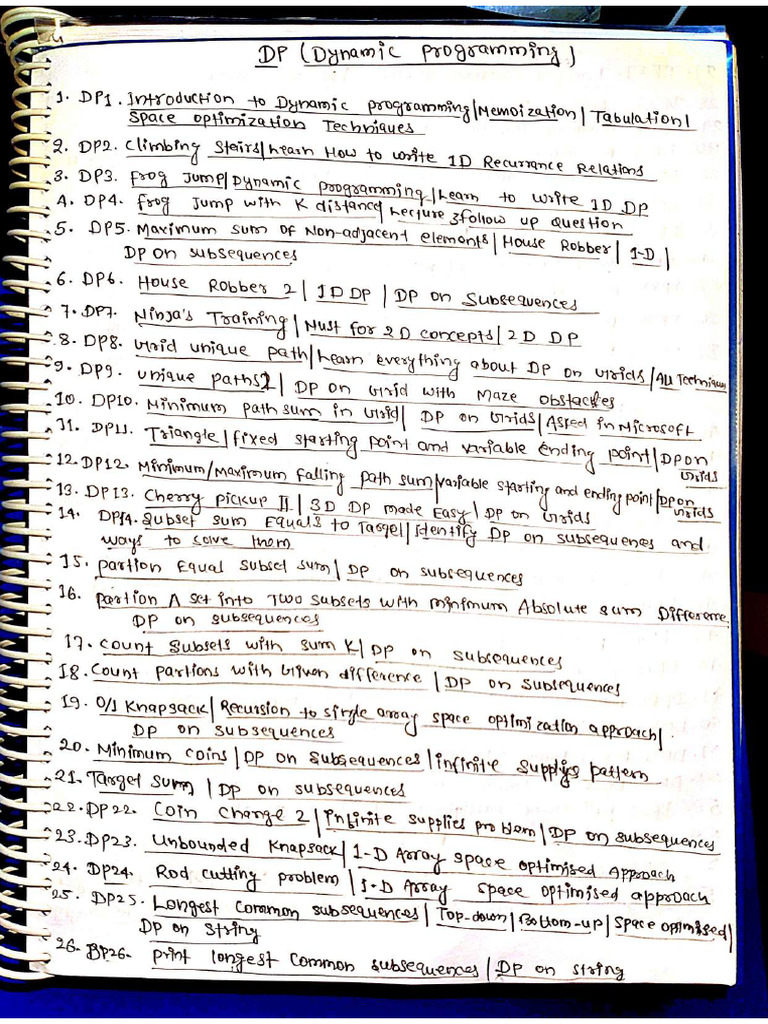 DP (Dynamic Programming)
1. DP1. Introduction to Dynamic programming|Memoization| Tabulation|
Space optimization Techniques
2. DP2. Climbing Stairs|Learn How to write 1D Recurrance Relations
3. DP3. Frog Jump|Dynamic programming|Learn to write 1D DP
4. DP4. Frog Jump with K distance|Lecture 3 follow up question
5. DP5. Maximum sum of Non-adjacent elements|House Robber| 1-D|
DP on subsequences
6. DP6. House Robber 2| 1D DP| DP on Subsequences
7. DP7. Ninja's Training|Must for 2D concepts|2D DP
8. DP8. Grid unique path|Learn everything about DP on Grids|All Techniques
9. DP9. unique paths2| DP on Grid with Maze obstacles
10. DP10. Minimum path sum in Grid| DP on Grids|Asked in Microsoft
11. DP11. Triangle|fixed starting point and variable Ending point|DP on
Grids
12. DP12. Minimum/Maximum falling path sum|variable starting and ending point|DP on
Grids
13. DP13. Cherry pickup II| 3D DP made Easy| DP on Grids
14. DP14. Subset sum Equals to Target|Identify DP on subsequences and
ways to solve them
15. partion Equal subset sum| DP on subsequences
16. partion A set into Two subsets with minimum Absolute sum Difference
DP on subsequences
17. count Subsets with sum K| DP on subsequences
18. Count partions with Given difference| DP on subsequences
19. 0/1 Knapsack| Recursion to single array space optimization approach|
DP on subsequences
20. Minimum coins| DP on Subsequences|infinite supplies pattern
21. Target sum| DP on subsequences
22. DP22. Coin Charge 2| Infinite supplies problem| DP on subsequences
23. DP23. Unbounded Knapsack| 1-D Array space optimised Approach
24. DP24. Rod cutting problem| 1-D Array space optimised approach
25. DP25. Longest common subsequences| Top-down| Bottom-up| Space optimised|
DP on String
26. DP26. print longest common subsequences| DP on string